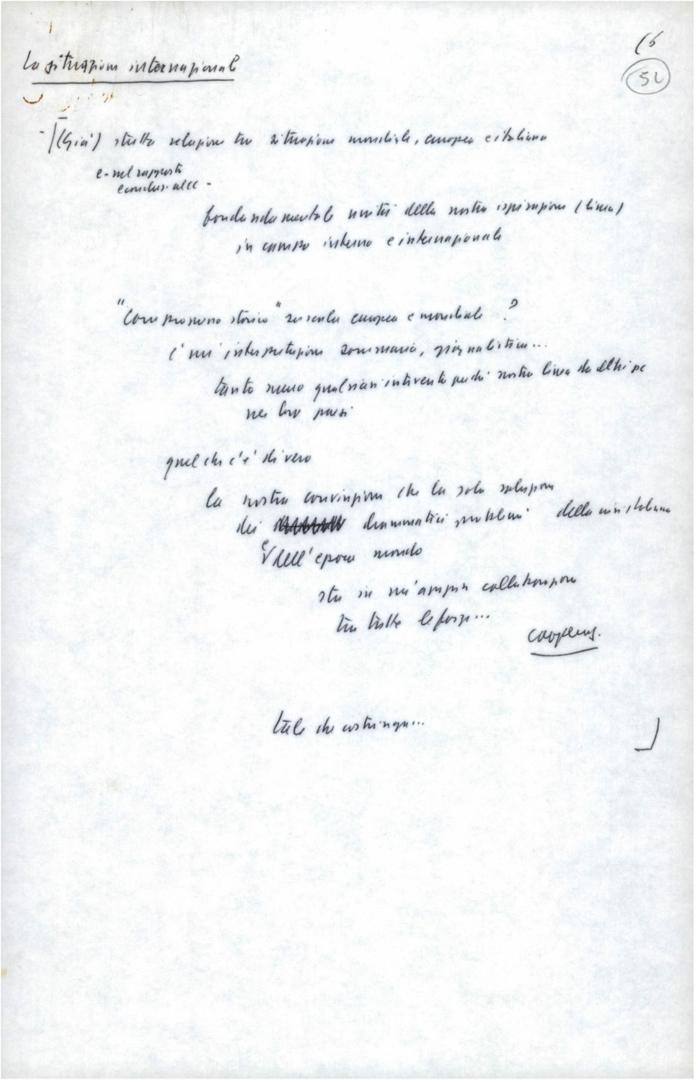 16
52
La situazione internazionale
(Già) stretta relazione tra situazione mondiale, europea e italiana
e nel rapporto
fondamentale unità della nostra ispirazione (linea)
in campo interno e internazionale
"Compromesso storico" su scala europea e mondiale?
è un'interpretazione sommaria, giornalistica...
tanto meno qualsiasi intervento perché nostra linea da altri pc
nei loro paesi
quel che c'è di vero
la nostra convinzione che la sola soluzione
dei drammatici problemi della
dell'epoca mondo
sta in un'ampia collaborazione
tra tutte le forze...
tale che costringa...